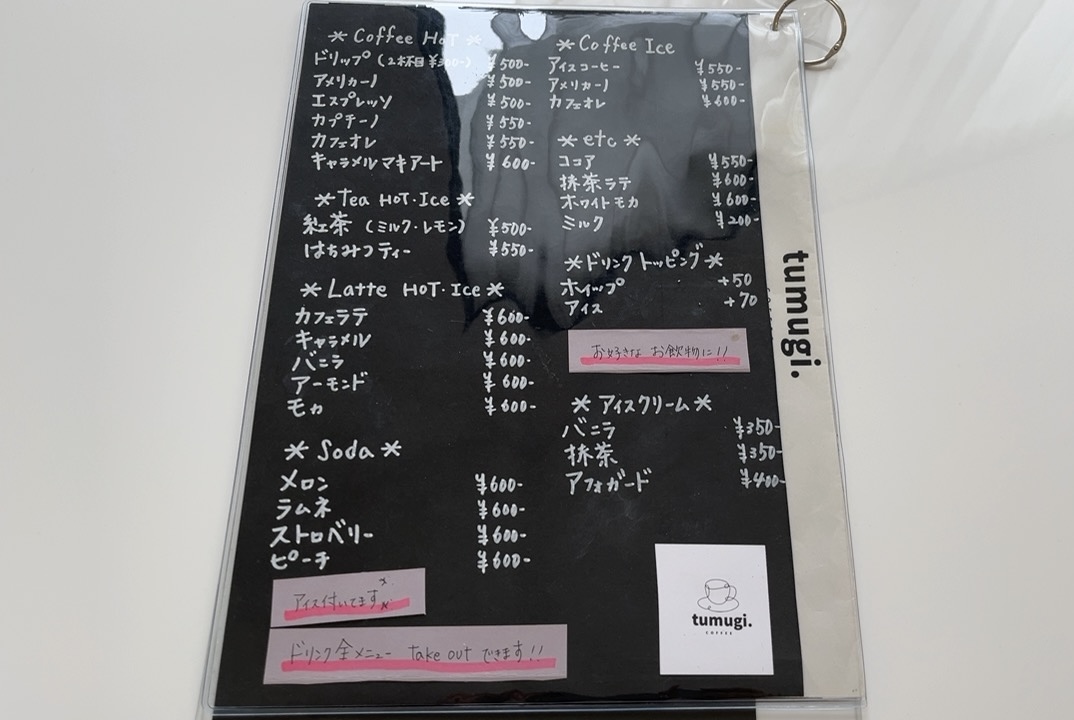 * Coffee HOT *
ドリップ (2杯目 ¥300-) ¥500-
アメリカーノ ¥500-
エスプレッソ ¥500-
カプチーノ ¥550-
カフェオレ ¥550-
キャラメルマキアート ¥600-
* Tea HOT・Ice *
紅茶 (ミルク・レモン) ¥500-
はちみつティー ¥550-
* Latte HOT・Ice *
カフェラテ ¥600-
キャラメル ¥600-
バニラ ¥600-
アーモンド ¥600-
モカ ¥600-
* Soda *
メロン ¥600-
ラムネ ¥600-
ストロベリー ¥600-
ピーチ ¥600-
アイス付いてます
ドリンク全メニュー take out できます!!
* Coffee Ice
アイスコーヒー ¥550-
アメリカーノ ¥550-
カフェオレ ¥600-
* etc *
ココア ¥550-
抹茶ラテ ¥600-
ホワイトモカ ¥600-
ミルク ¥200-
* ドリンクトッピング *
ホイップ +50
アイス +70
お好きな お飲物に!!
* アイスクリーム *
バニラ ¥350-
抹茶 ¥350-
アフォガード ¥400-
tumugi.
COFFEE
tumugi.